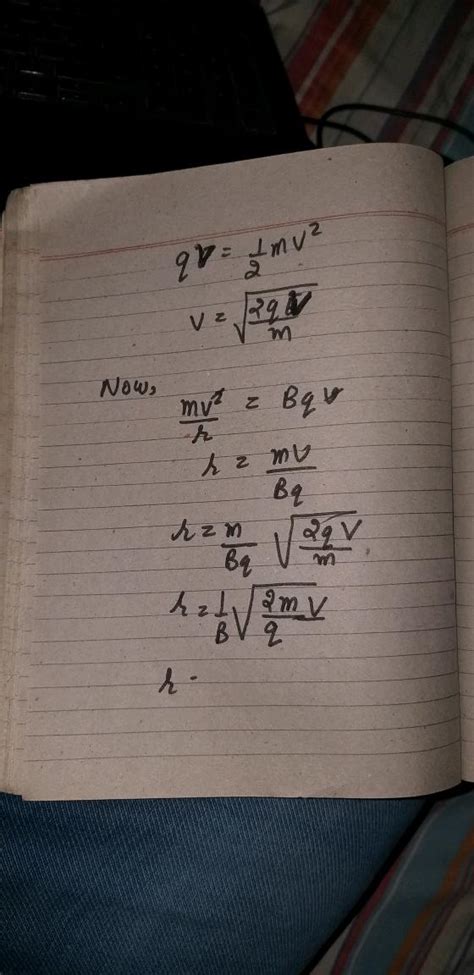 qV = 1/2 mv²
v = √(2qV/m)
Now, mv²/r = Bqv
r = mv/Bq
r = m/Bq √(2qV/m)
r = 1/B √(2mV/q)
r .